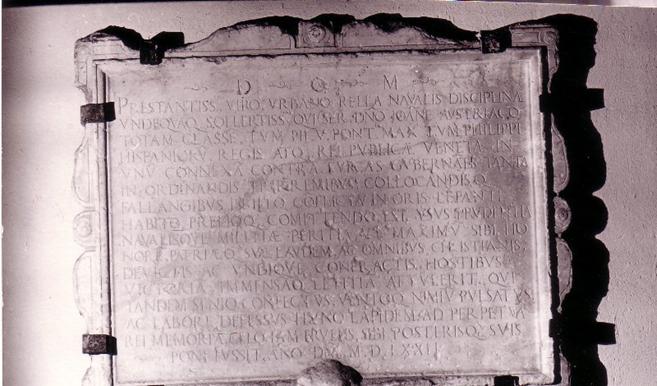 D O M
PRESTANTISS VIRO VRBANO RELLA NAVALIS DISCIPLINÆ
VNDEQVAQ SOLLERTISS QVI SER DNO IOANE AVSTRIACO
TOTAM CLASSE TVM PII V PONT MAX TVM PHILIPPI
HISPANIORV REGIS ATQ REI PVBLICÆ VENETÆ IN
VNV CONNEXA CONTRA TVRCAS GVBERNATE TANTA
IN ORDINANDIS TRIREMIBVS COLLOCANDISQ
FALLANGIBVS BELLO CONFLICTV IN ORIS LEPANTI
HABITO PRELIOQ COMITTENDO EXT VSVS PRVDENTIA
NAVALISQVE MILITIÆ PERITIA VT MAXIMV SIBI HO
NORE PATRIÆQ SVÆ LAVDEM AC OMNIBVS CHRISTIANIS
DEVICTIS AC VNDIQVE CONFRACTIS HOSTIBVS
VICTORIA IMMENSAQ LETITIA ATTVLERIT QVI
TANDEM SENIO CONFECTVS VENTOQ NIMIV PVLSATVS
AC LABORE DEFESSVS HVNC LAPIDEM AD PERPETVA
REI MEMORIA SIBI POSTERISQ SVIS
PONI IVSSIT ANO DNI M D LXXII